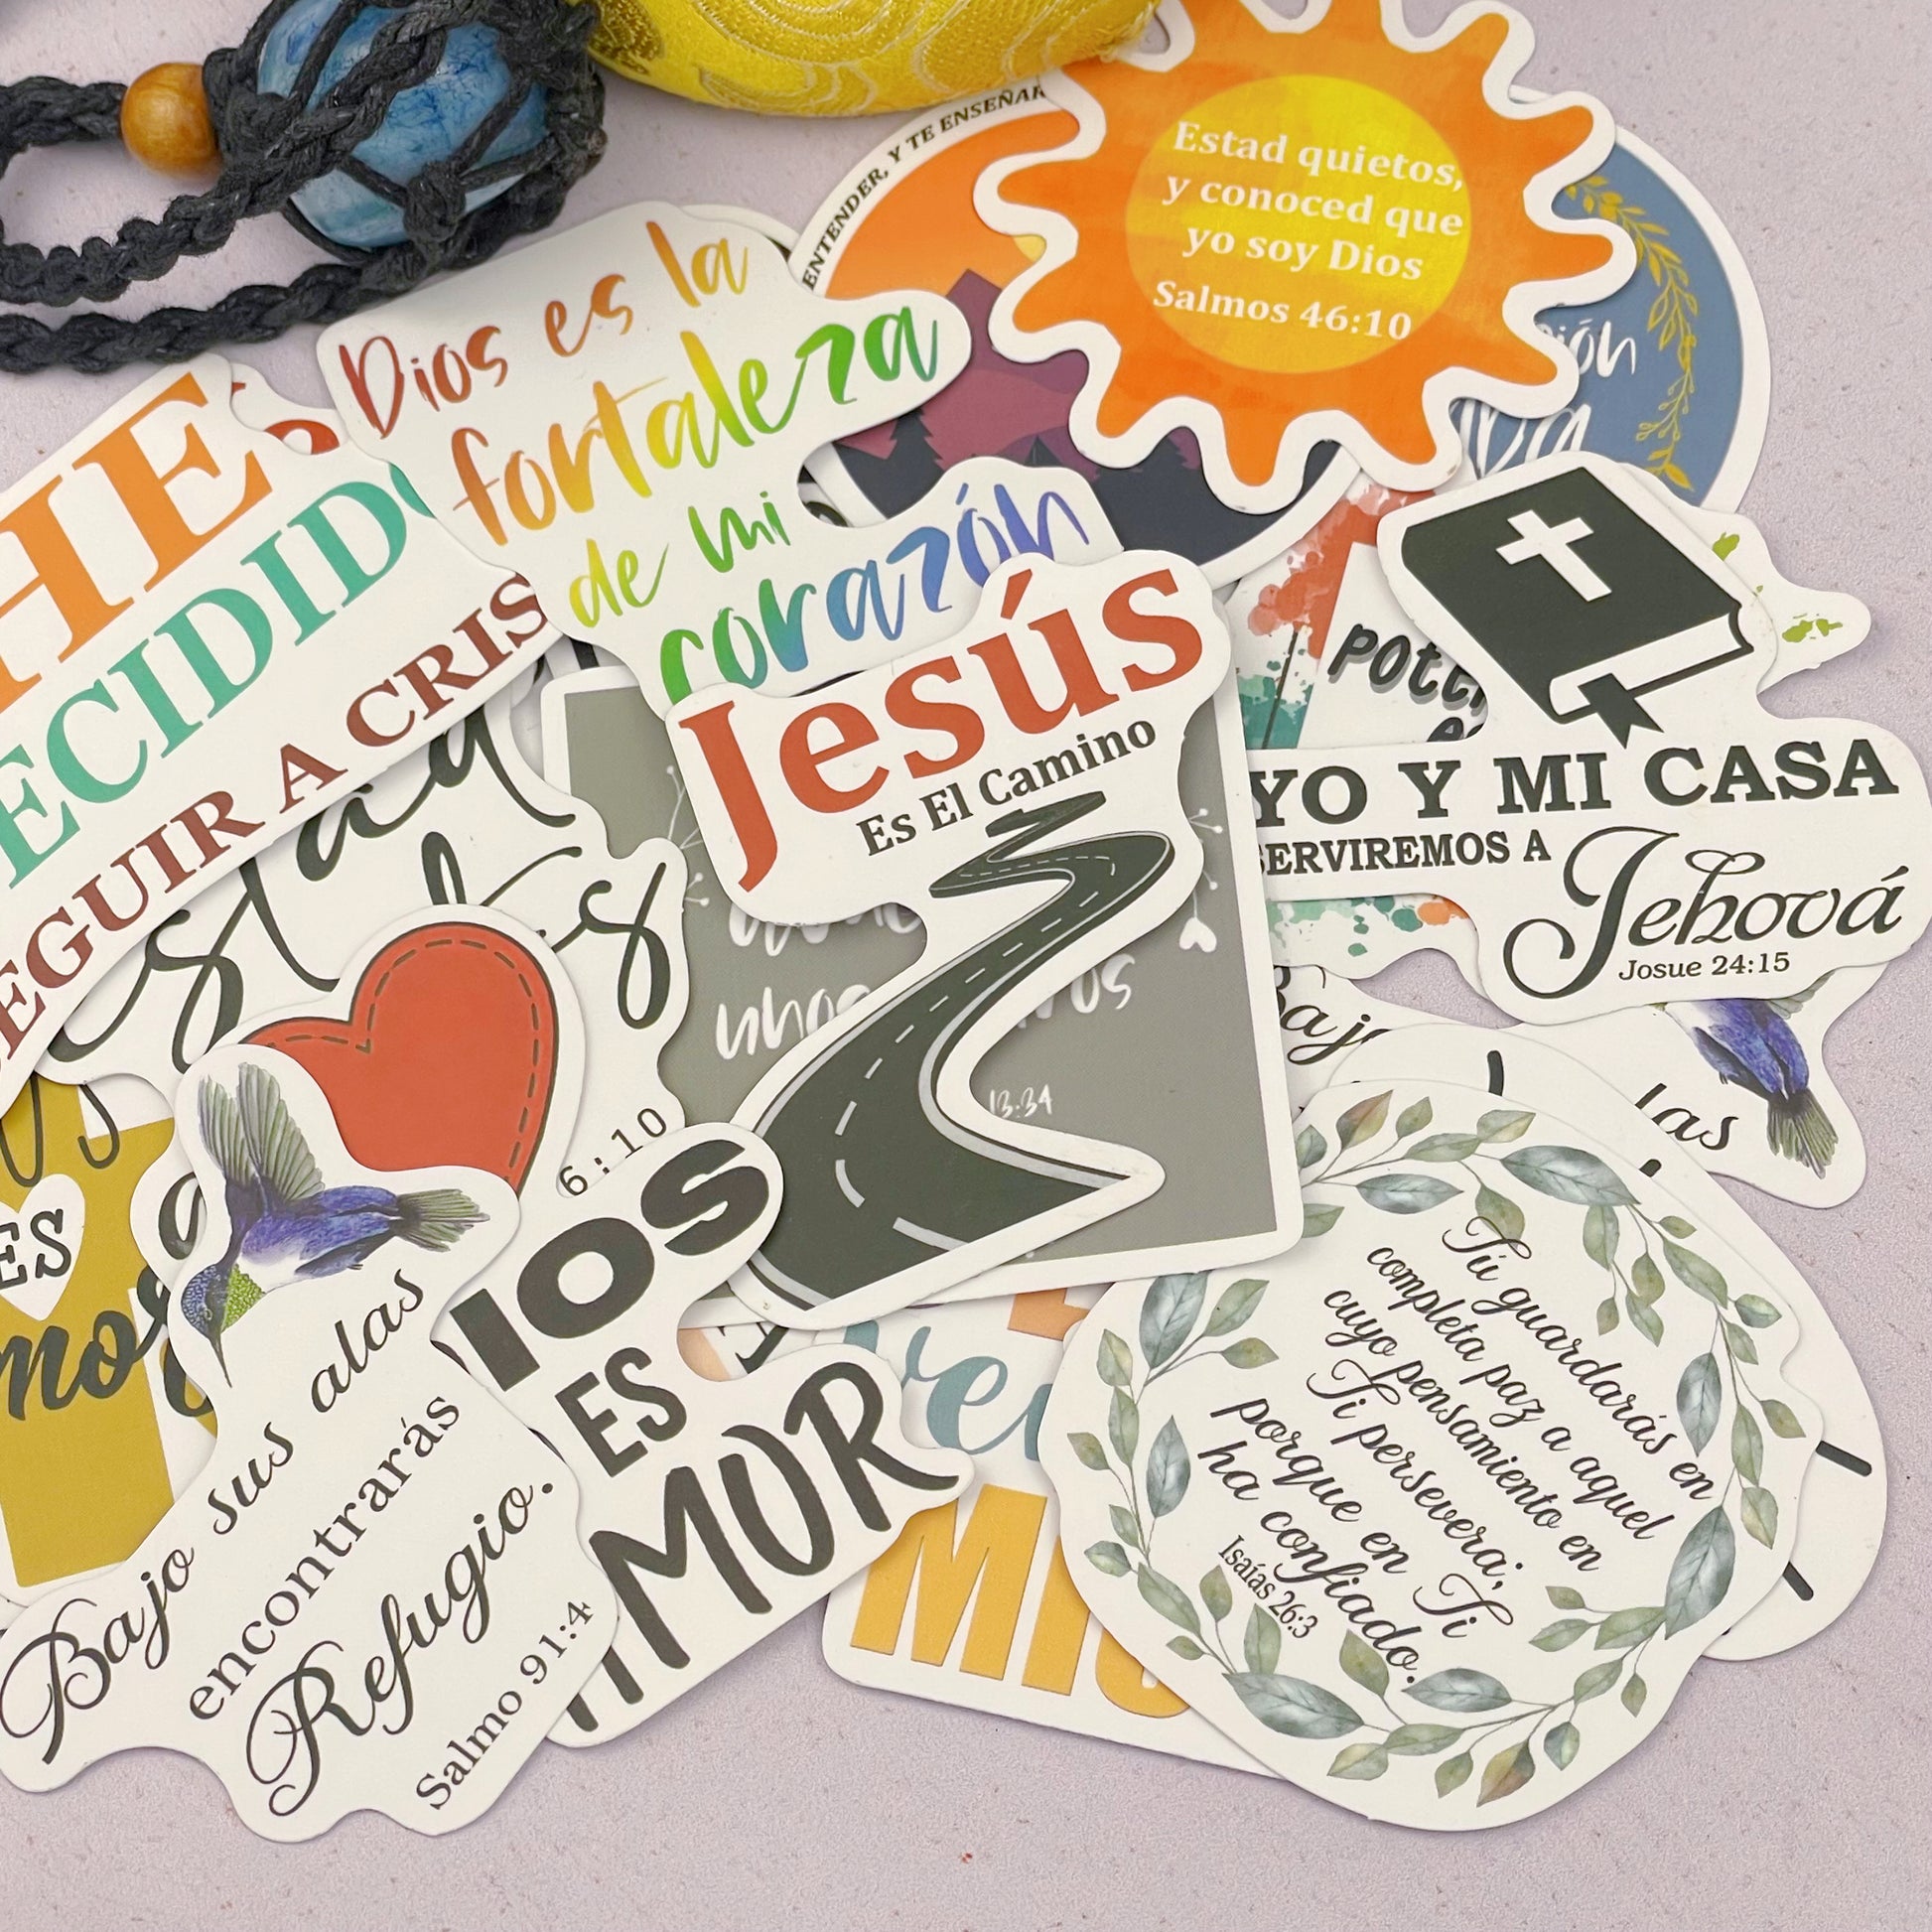 ENTENDER, Y TE ENSEÑAR
Estad quietos,
y conoced que
yo soy Dios
Salmos 46:10
Dios es la
fortaleza
de mi
corazón
HE
ECIDIDO
SEGUIR A CRIS
Jesús
Es El Camino
YO Y MI CASA
SERVIREMOS A
Jehová
Josue 24:15
13:34
6:10
ES
Bajo
las
IOS
ES
MOR
Bajo sus alas
encontrarás
Refugio.
Salmo 91:4
Tú guardarás en
completa paz a aquel
cuyo pensamiento en
Ti persevera;
porque en Ti
ha confiado.
Isaías 26:3